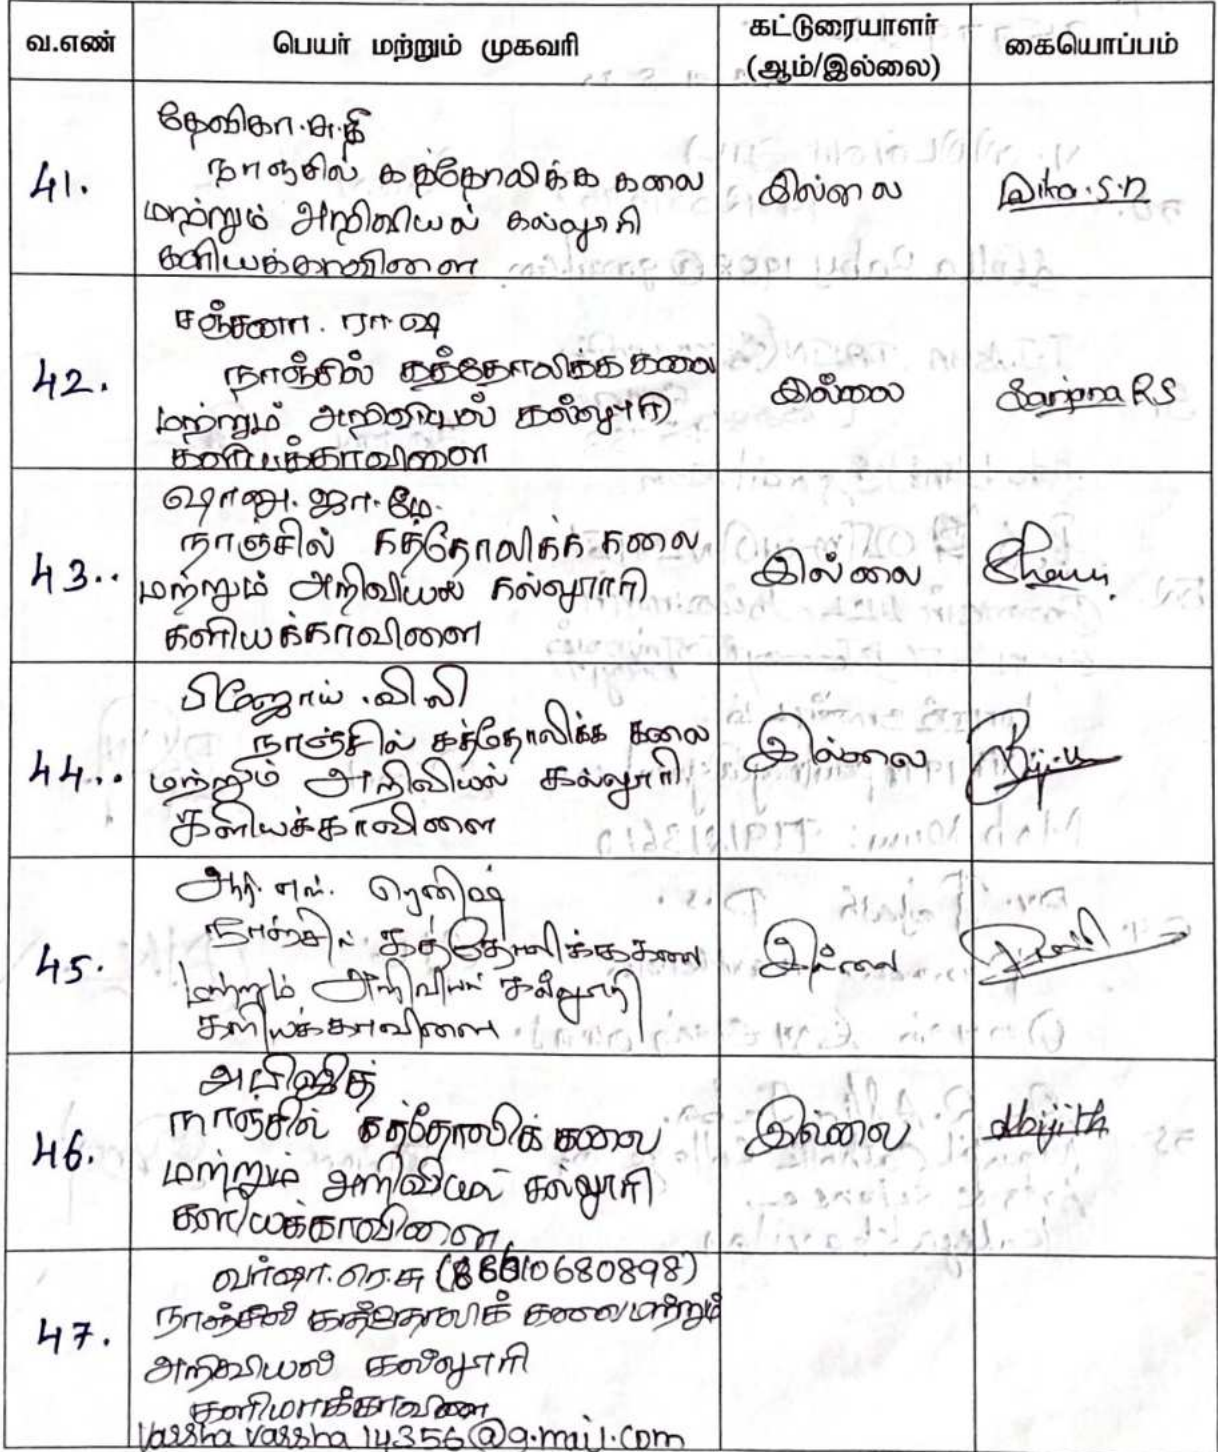 வ.எண் பெயர் மற்றும் முகவரி கட்டுரையாளர் (ஆம்/இல்லை) கையொப்பம்
41.
தேவிகா.சு.தி
நாஞ்சில் கத்தோலிக்க கலை
மற்றும் அறிவியல் கல்லூரி
களியக்காவிளை
இல்லை
42.
சஞ்சனா. ரா ஷ
நாஞ்சில் கத்தோலிக்க கலை
மற்றும் அறிவியல் கல்லூரி
களியக்காவிளை
இல்லை
Sanjana RS
43..
ஷானு. ஜா. மே.
நாஞ்சில் கத்தோலிக்க கலை
மற்றும் அறிவியல் கல்லூரி
களியக்காவிளை
இல்லை
44..
பிஜோய் .வி.வி
நாஞ்சில் கத்தோலிக்க கலை
மற்றும் அறிவியல் கல்லூரி
களியக்காவிளை
இல்லை
45.
ஆர். எல். ரெனிஷ்
நாஞ்சில் கத்தோலிக்க கலை
மற்றும் அறிவியல் கல்லூரி
களியக்காவிளை
இல்லை
46.
அபிஜித்
நாஞ்சில் கத்தோலிக் கலை
மற்றும் அறிவியல் கல்லூரி
களியக்காவிளை
இல்லை
Abijith
47.
வர்ஷா.ரெ.சு
நாஞ்சில் கத்தோலிக் கலை மற்றும்
அறிவியல் கல்லூரி
களிமாக்காவிளை
Varsha varsha 14356@g.mail.com